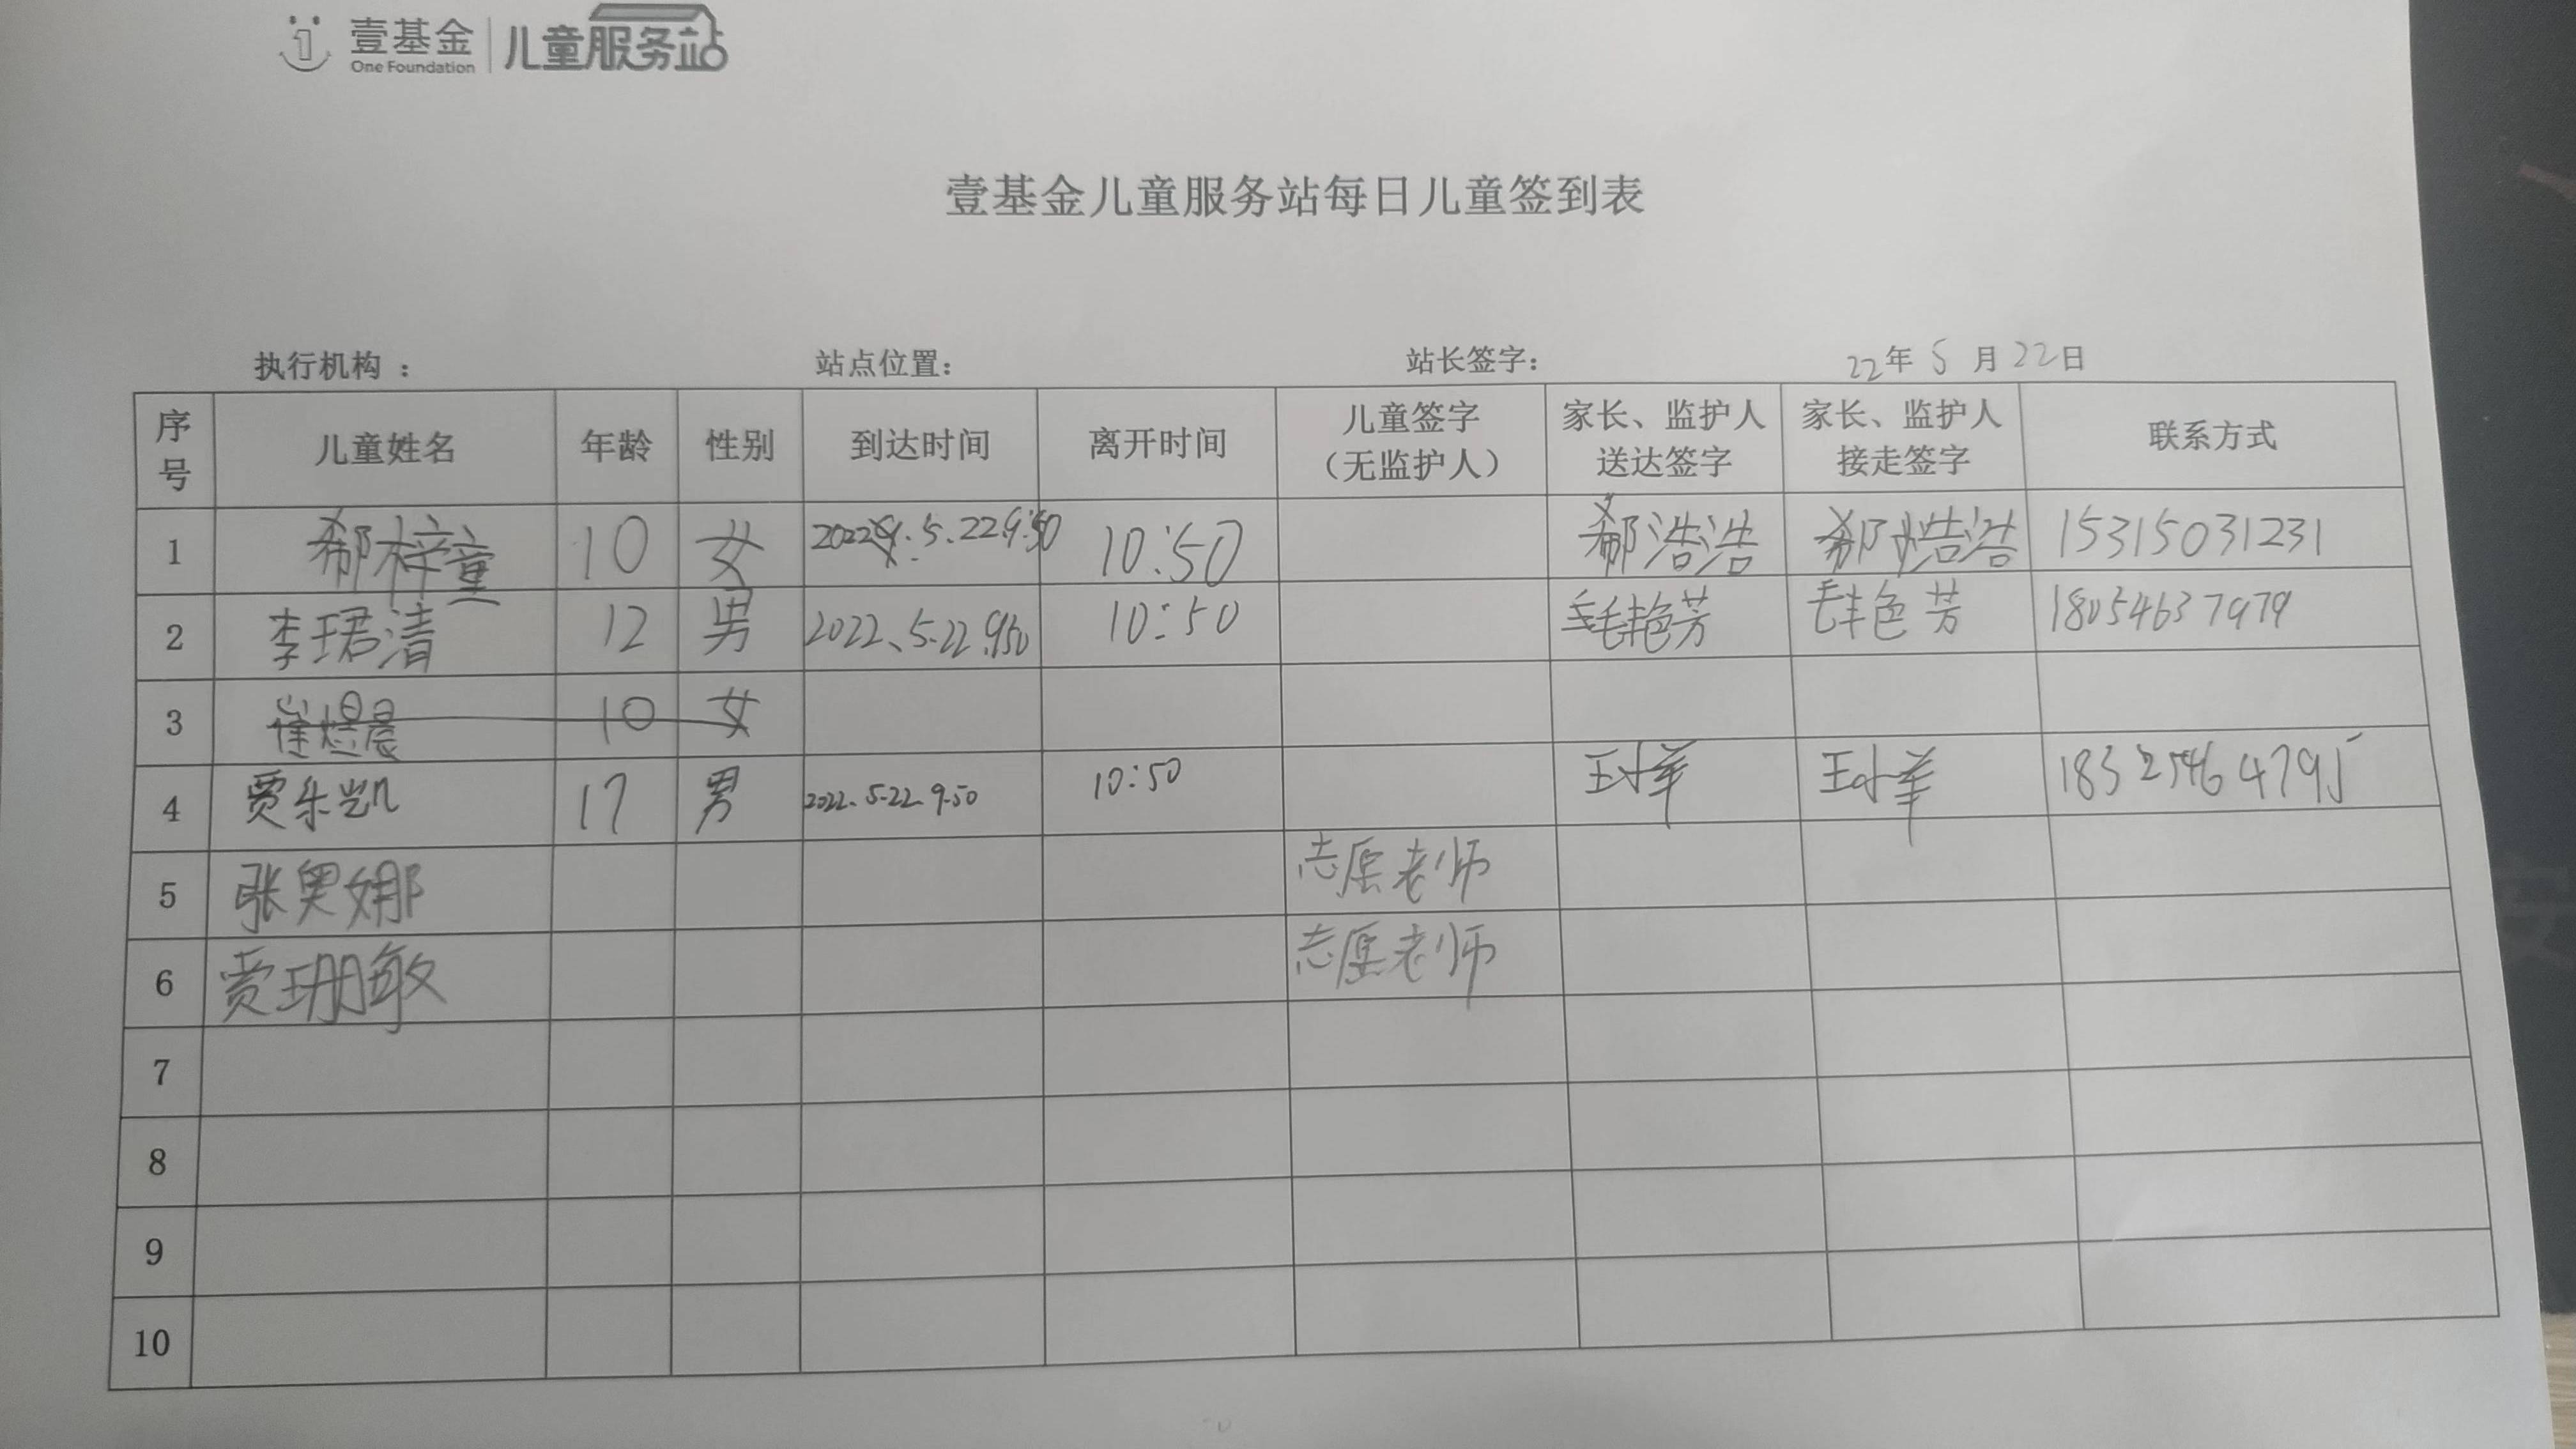 壹基金 儿童服务站
One Foundation
壹基金儿童服务站每日儿童签到表
执行机构： 站点位置： 站长签字： 22年 5 月 22日
序号 儿童姓名 年龄 性别 到达时间 离开时间 儿童签字（无监护人） 家长、监护人送达签字 家长、监护人接走签字 联系方式
1 郗梓童 10 女 2022.5.22.9:50 10:50 郗浩浩 郗浩浩 15315031231
2 李珺清 12 男 2022、5.22.9:50 10:50 毛艳芳 毛艳芳 18054637979
3 崔煜晨 10 女
4 贾乐凯 17 男 2022.5.22.9.50 10:50
5 张奥娜 志愿老师
6 贾珊敏 志愿老师
7
8
9
10